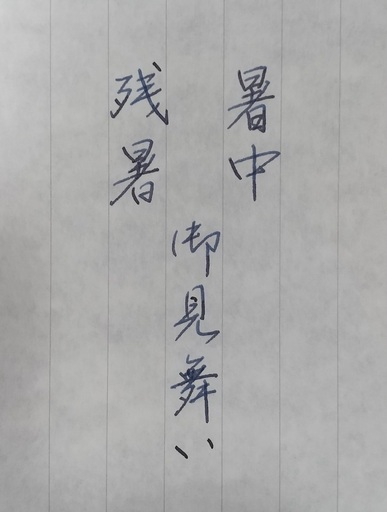 暑中
残暑
御見舞い